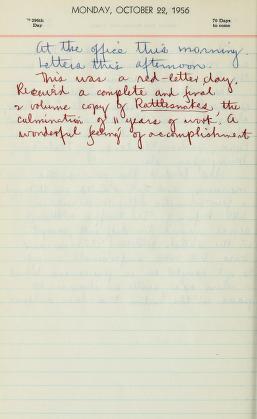 MONDAY, OCTOBER 22, 1956
296th
Day
70 Days
to come
At the office this morning.
Letters this afternoon.
This was a red-letter day.
Received a complete and final
2 volume copy of Rattlesnakes, the
culmination of 11 years of work. A
wonderful feeling of accomplishment